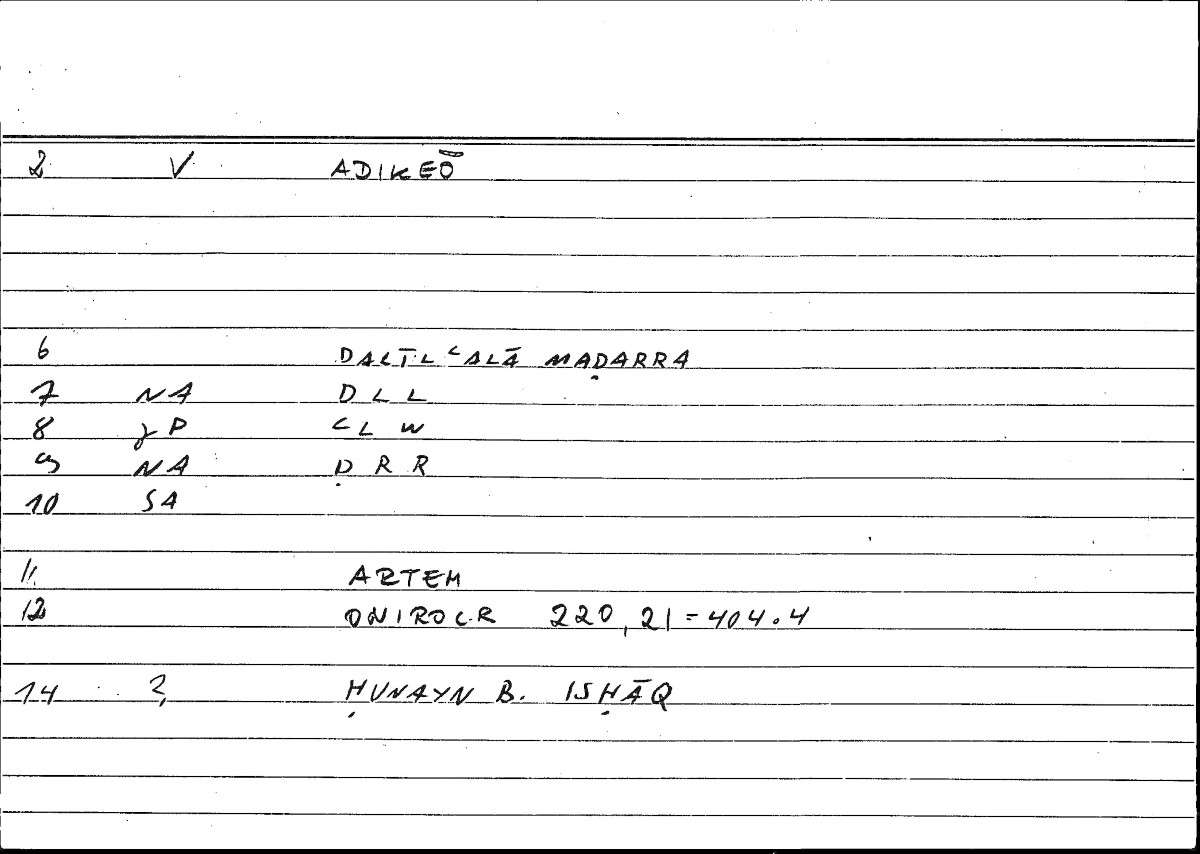 2 V ADIKEŌ
6 DALĪL ʿALĀ MAḌARRA
7 NA DLL
8 γP ʿLW
9 NA ḌRR
10 SA
11 ARTEM
12 ONIROCR 220,21=404.4
14 ? ḤUNAYN B. ISḤĀQ